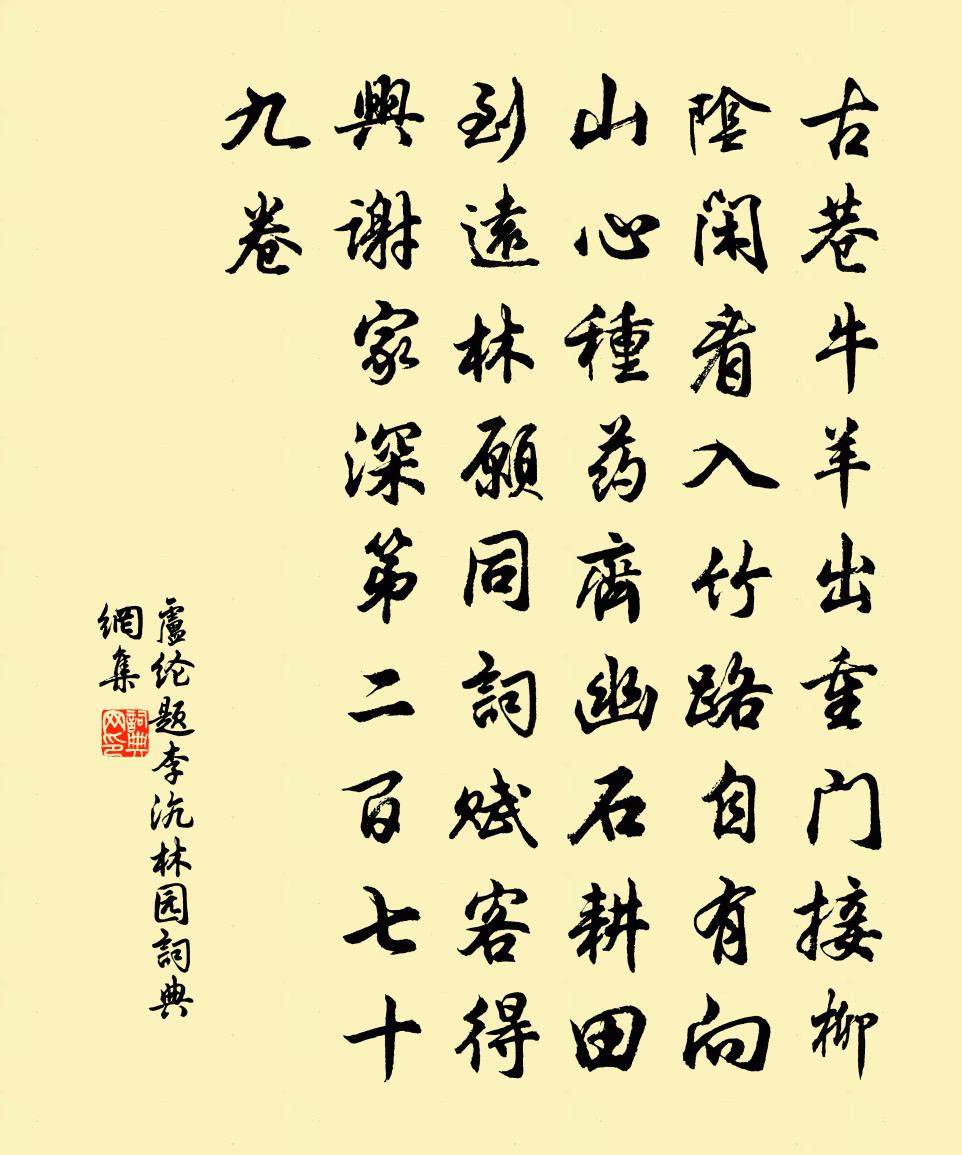 古巷牛羊出重门接柳
陰闲看入竹路自有向
山心種药齊幽石耕田
到遠林願同詞赋客得
興謝家深第二百七十
九卷
盧纶题李沆林园詞典
網集
詞典
网印